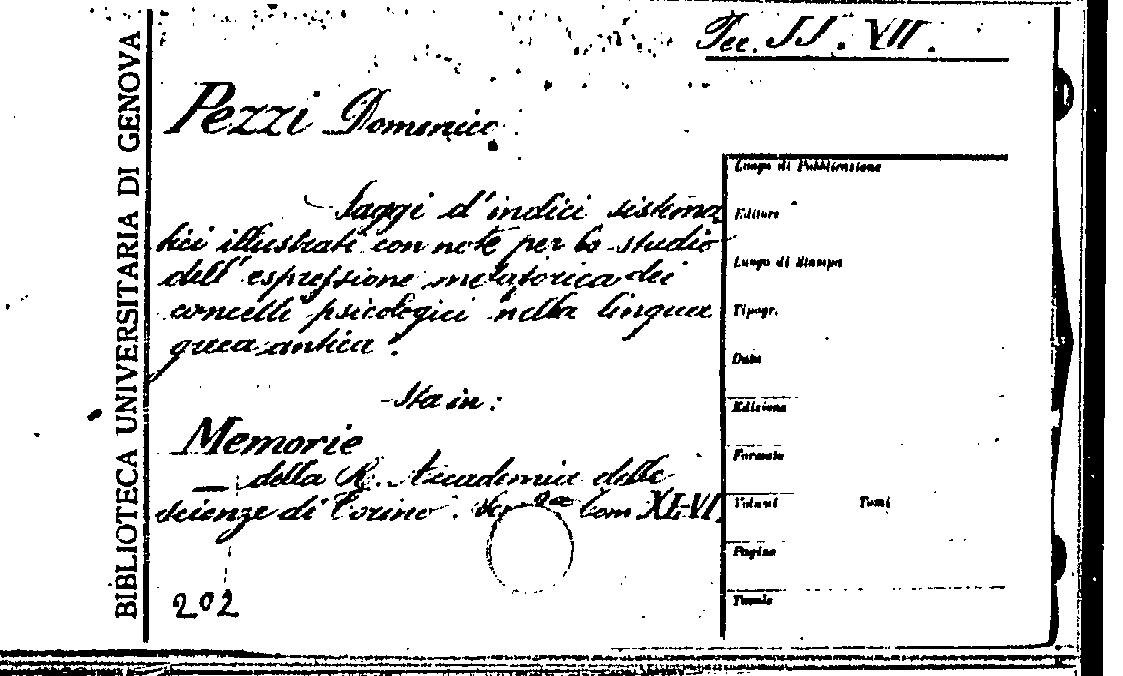 BIBLIOTECA UNIVERSITARIA DI GENOVA
Per. JJ. VII.
Pezzi Domenico
Saggi d'indici sistema
tici illustrati con note per lo studio
dell'espressione metaforica dei
concetti psicologici nella lingua
greca antica.
Sta in:
Memorie
della R. Accademia delle
scienze di Torino. Ser 2a Tom XLVI.
202
Luogo di Pubblicazione
Editore
Luogo di Stampa
Tipogr.
Data
Edizione
Formato
Volumi Tomi
Pagine
Tavole